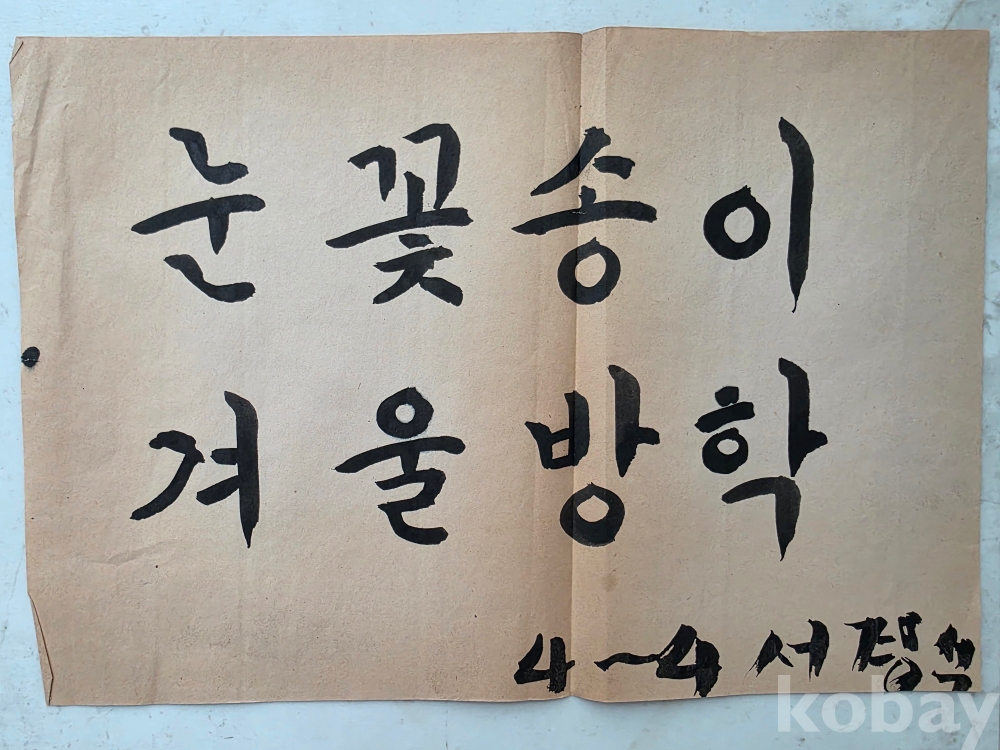 눈꽃송이
겨울방학
4~4 서정석
kobay